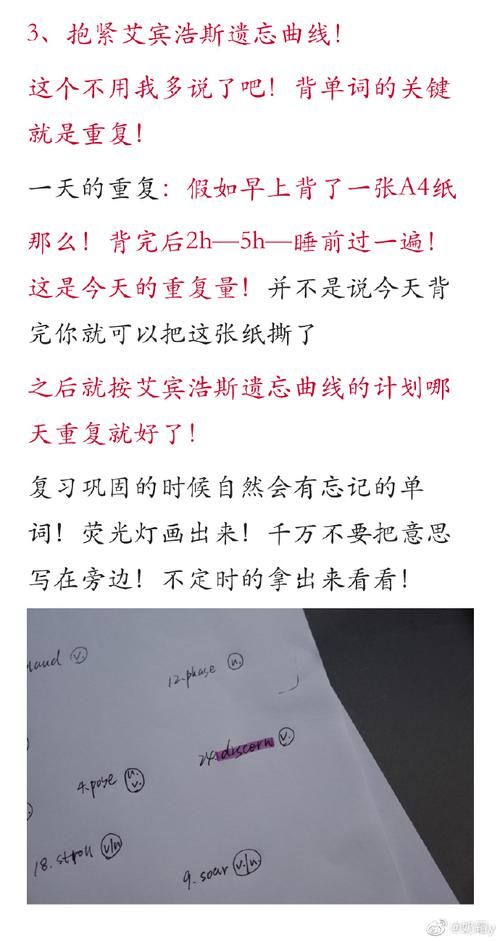 3、抱紧艾宾浩斯遗忘曲线！
这个不用我多说了吧！背单词的关键
就是重复！
一天的重复：假如早上背了一张A4纸
那么！背完后2h—5h—睡前过一遍！
这是今天的重复量！并不是说今天背
完你就可以把这张纸撕了
之后就按艾宾浩斯遗忘曲线的计划哪
天重复就好了！
复习巩固的时候自然会有忘记的单
词！荧光灯画出来！千万不要把意思
写在旁边！不定时的拿出来看看！
v.
12.phase n.
24.discern v.
4.pose n. v.
18.stroll v/n
9.soar v/n